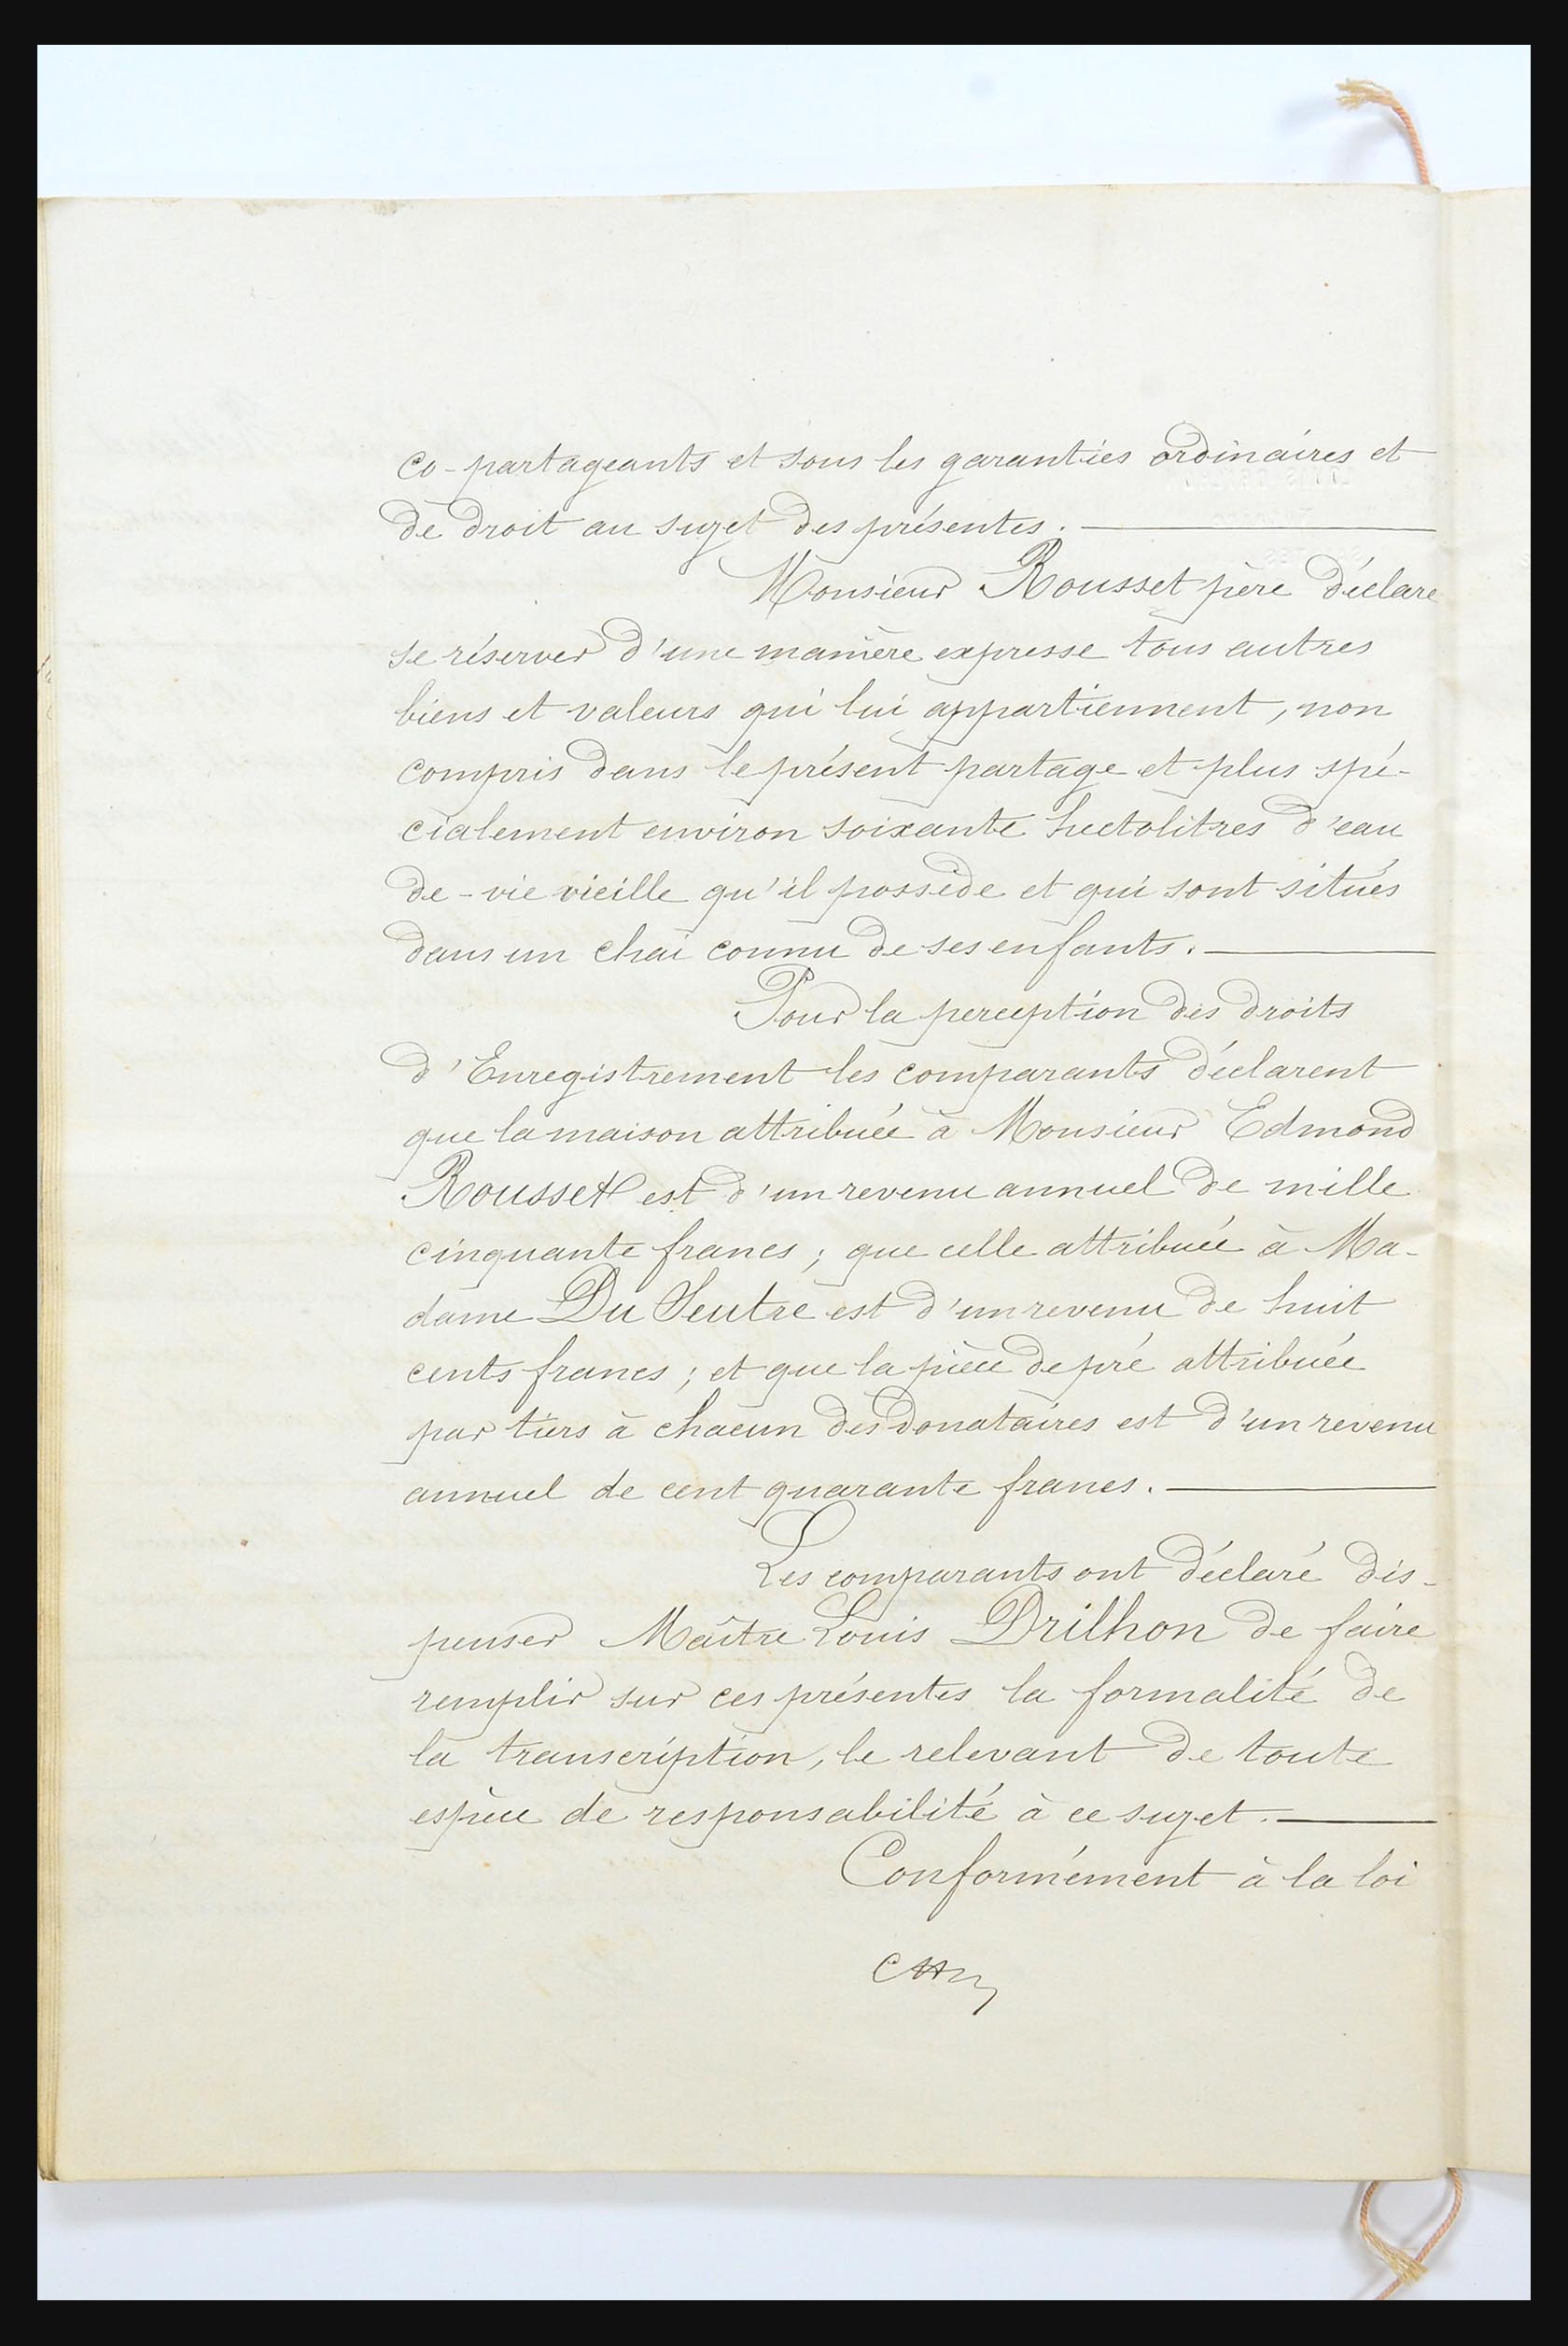 co-partageants et sous les garanties ordinaires et
de droit au sujet des présentes.
Monsieur Rousset père déclare
se réserver d'une manière expresse tous autres
biens et valeurs qui lui appartiennent, non
compris dans le présent partage et plus spé-
cialement environ soixante hectolitres d'eau
de-vie vieille qu'il possède et qui sont situés
dans un chai connu de ses enfants.
Pour la perception des droits
d'Enregistrement les comparants déclarent
que la maison attribuée à Monsieur Edmond
Rousset est d'un revenu annuel de mille
cinquante francs; que celle attribuée à Ma-
dame Du Seutre est d'un revenu de huit
cents francs; et que la pièce de pré attribuée
par tiers à chacun des donataires est d'un revenu
annuel de cent quarante francs.
Les comparants ont déclaré dis-
penser Maître Louis Drilhon de faire
remplir sur ces présentes la formalité de
la transcription, le relevant de toute
espèce de responsabilité à ce sujet.
Conformément à la loi